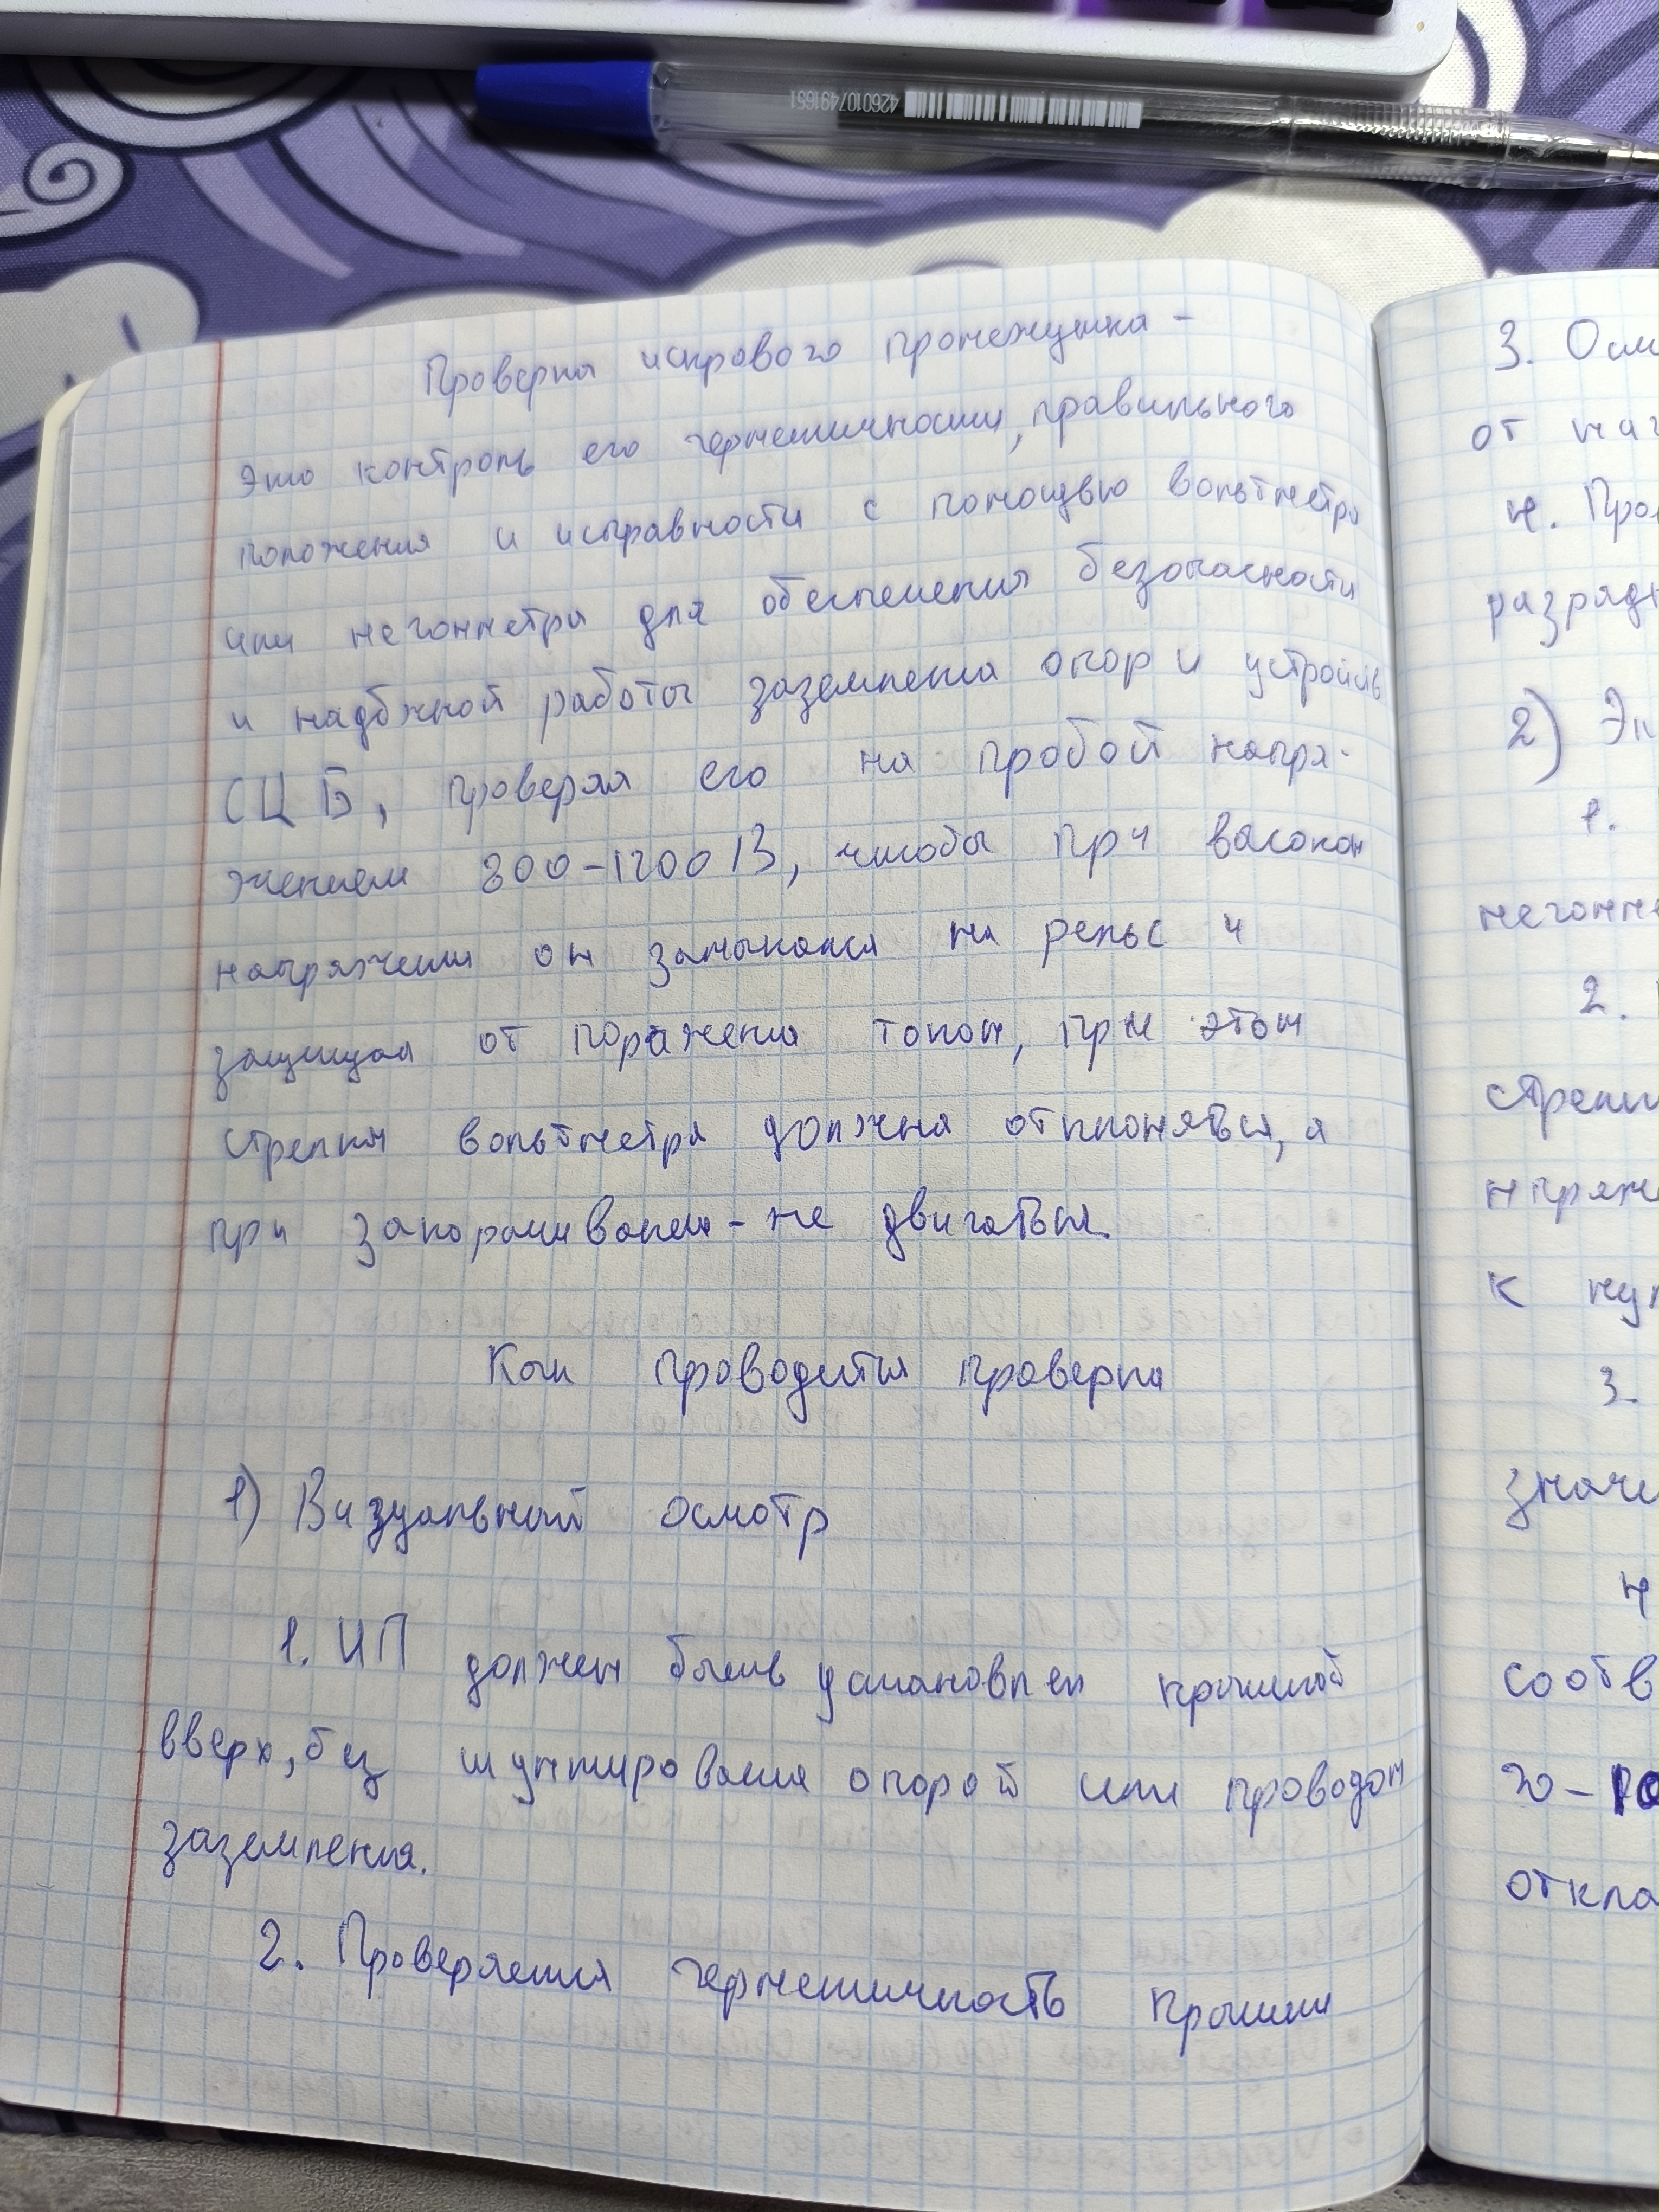 4260107491651
Проверка искрового промежутка -
это контроль его герметичности, правильного
положения и исправности с помощью вольтметра
или мегомметра для обеспечения безопасности
и надёжной работы заземления опор и устройств
СЦБ, проверяя его на пробой напря-
жением 800-1200 В, чтобы при высоком
напряжении он замыкался на рельс и
защищал от поражения током, при этом
стрелка вольтметра должна отклоняться, а
при закорачивании - не двигаться.
Как проводится проверка
1) Визуальный осмотр
1. ИП должен быть установлен крышкой
вверх, без шунтирования опорой или проводом
заземления.
2. Проверяется герметичность крышки
3. Осм
от наг
4. Про
разряд
2) Эл
1.
мегомме
2.
стрелк
к нул
3.
значе
4
соотв
20-10
откла